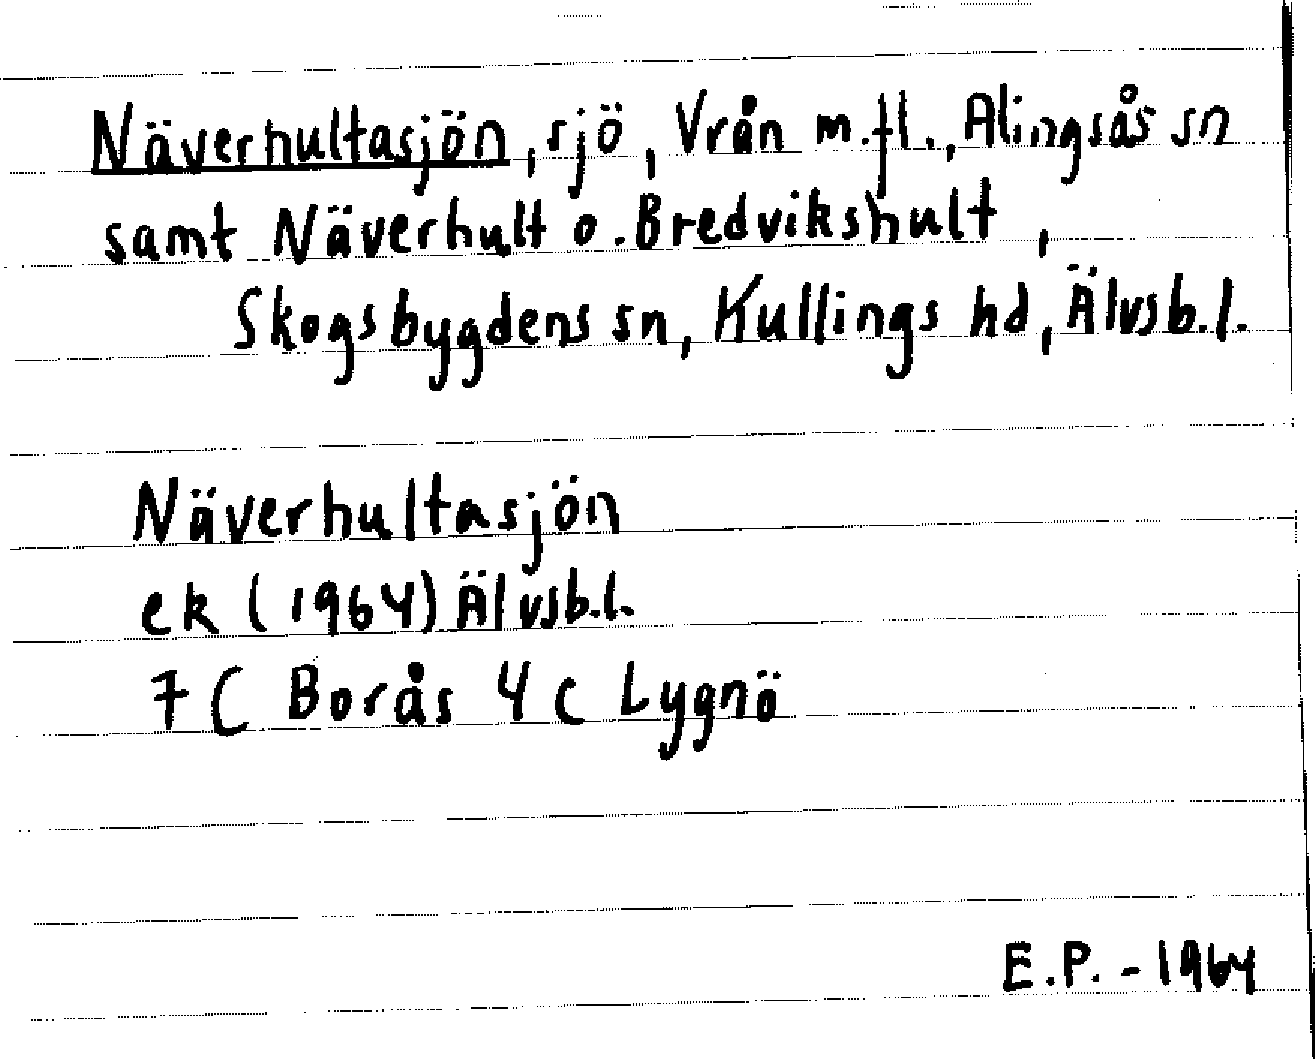 Näverhultasjön, sjö, Vrån m.fl., Alingsås sn
samt Näverhult o. Bredvikshult,
Skogsbygdens sn, Kullings hd, Älvsb.l.
Näverhultasjön
ek (1964) Älvsb.l.
7 C Borås 4 c Lygnö
E.P. - 1964